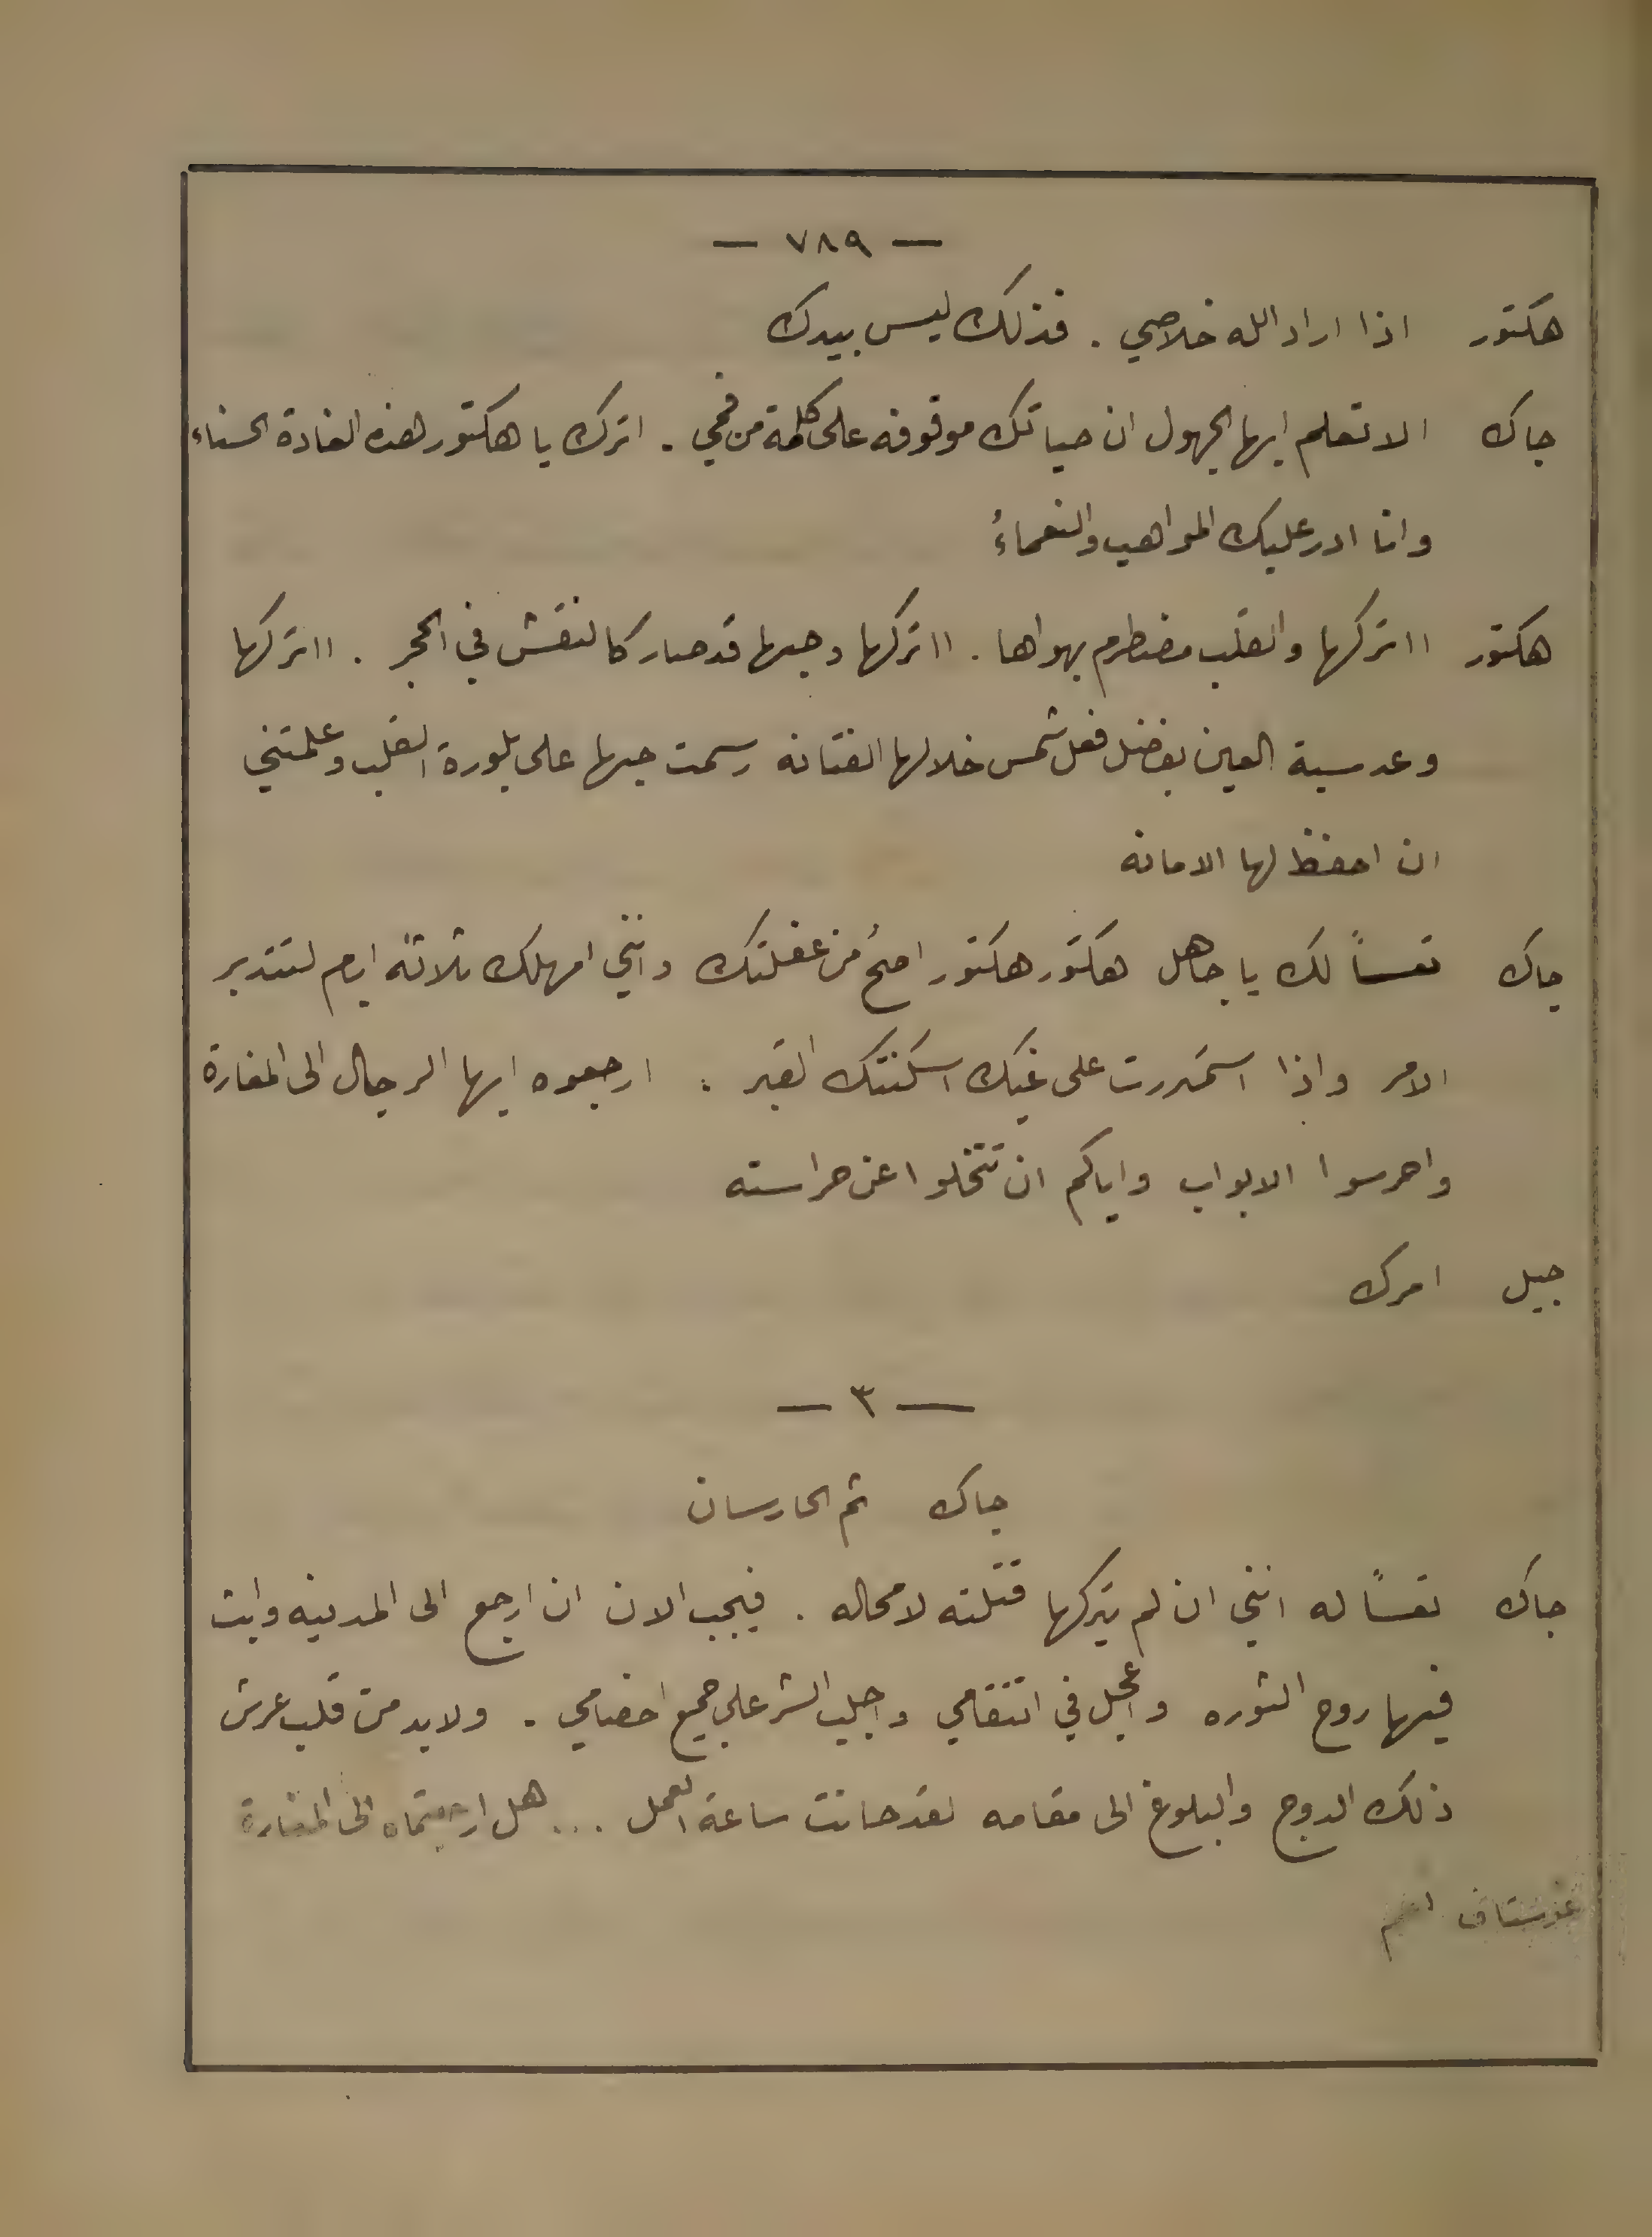 — ٧٨٩ —
هكتور اذا اراد الله خلاصي . فذلك ليس بيدك
جاك الا تعلم ايها الجهول ان حياتك موقوفه على كلمة من فمي . اترك يا هكتور هذه الغادة الحسناء
وانا ادر عليك المواهب والنعماءُ
هكتور ااتركها والقلب مضطرم بهواها . ااتركها وحبها قد صار كالنقش في الحجر . ااتركها
وعدسية العين بفضل فعل شمس خلالها الفتانه رسمت حبها على بلورة القلب وعلمتني
ان احفظ لها الامانه
جاك تعساً لك يا جاهل هكتور هكتور اصحُ من غفلتك وانني امهلك ثلاثة ايام لتتدبر
الامر واذا استمررت على غيك اسكنتك القبر : ارجعوه ايها الرجال الى المغارة
واحرسوا الابواب واياكم ان تتخلوا عن حراسته
جيل امرك
— ٣ —
جاك ثم الحارسان
جاك تعساً له انني ان لم يتركها قتلته لا محاله . فيجب الان ان ارجع الى المدينه وابث
فيها روح الثوره واعجل في انتقامي واجلب الشر على جميع اخصامي . ولا بد من قلب عرش
ذلك الدوج والبلوغ الى مقامه لقد حانت ساعة العمل ... هل ارجعتماه الى المغارة
غوستاف نعم